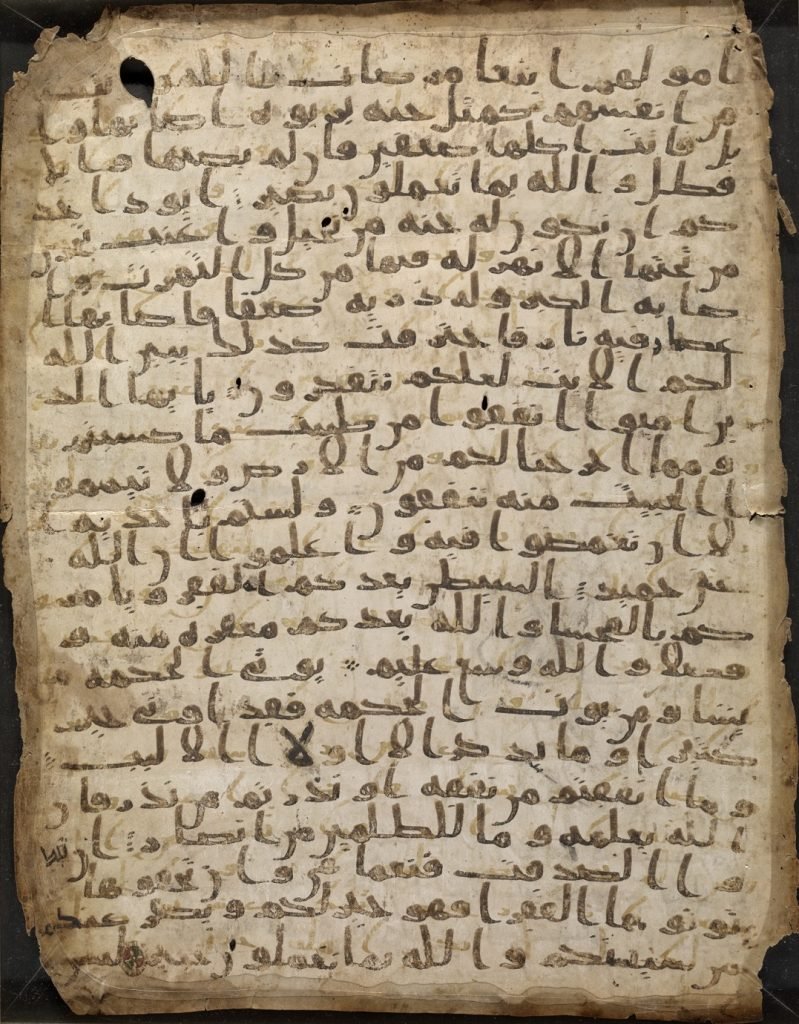 امولهم ابتغا مرضات الله وتثبيتا
من انفسهم كمثل جنة بربوة اصابها وا
بل فاتت اكلها ضعفين فان لم يصبها وابل
فطل والله بما تعملون بصير ايود احد
كم ان تكون له جنة من نخيل واعنب تجري
من تحتها الانهر له فيها من كل الثمرت وا
صابه الكبر وله ذرية ضعفا فاصابها ا
عصار فيه نار فاحترقت كذلك يبين الله
لكم الايت لعلكم تتفكرون يايها الذ
ين امنوا انفقوا من طيبت ما كسبتم
ومما اخرجنا لكم من الارض ولا تيمموا
الخبيث منه تنفقون ولستم باخذيه ا
لا ان تغمضوا فيه واعلموا ان الله
غني حميد الشيطن يعدكم الفقر ويامر
كم بالفحشا والله يعدكم مغفرة منه و
فضلا والله وسع عليم يوتي الحكمة من
يشا ومن يوت الحكمة فقد اوتي خيرا
كثيرا وما يذكر الا اولا الالبب
وما انفقتم من نفقة او نذرتم من نذر فان
الله يعلمه وما للظلمين من انصار ان
تبدوا الصدقت فنعما هي وان تخفوها
وتوتوها الفقرا فهو خير لكم ويكفر عنكم
من سيتكم والله بما تعملون خبير ليس